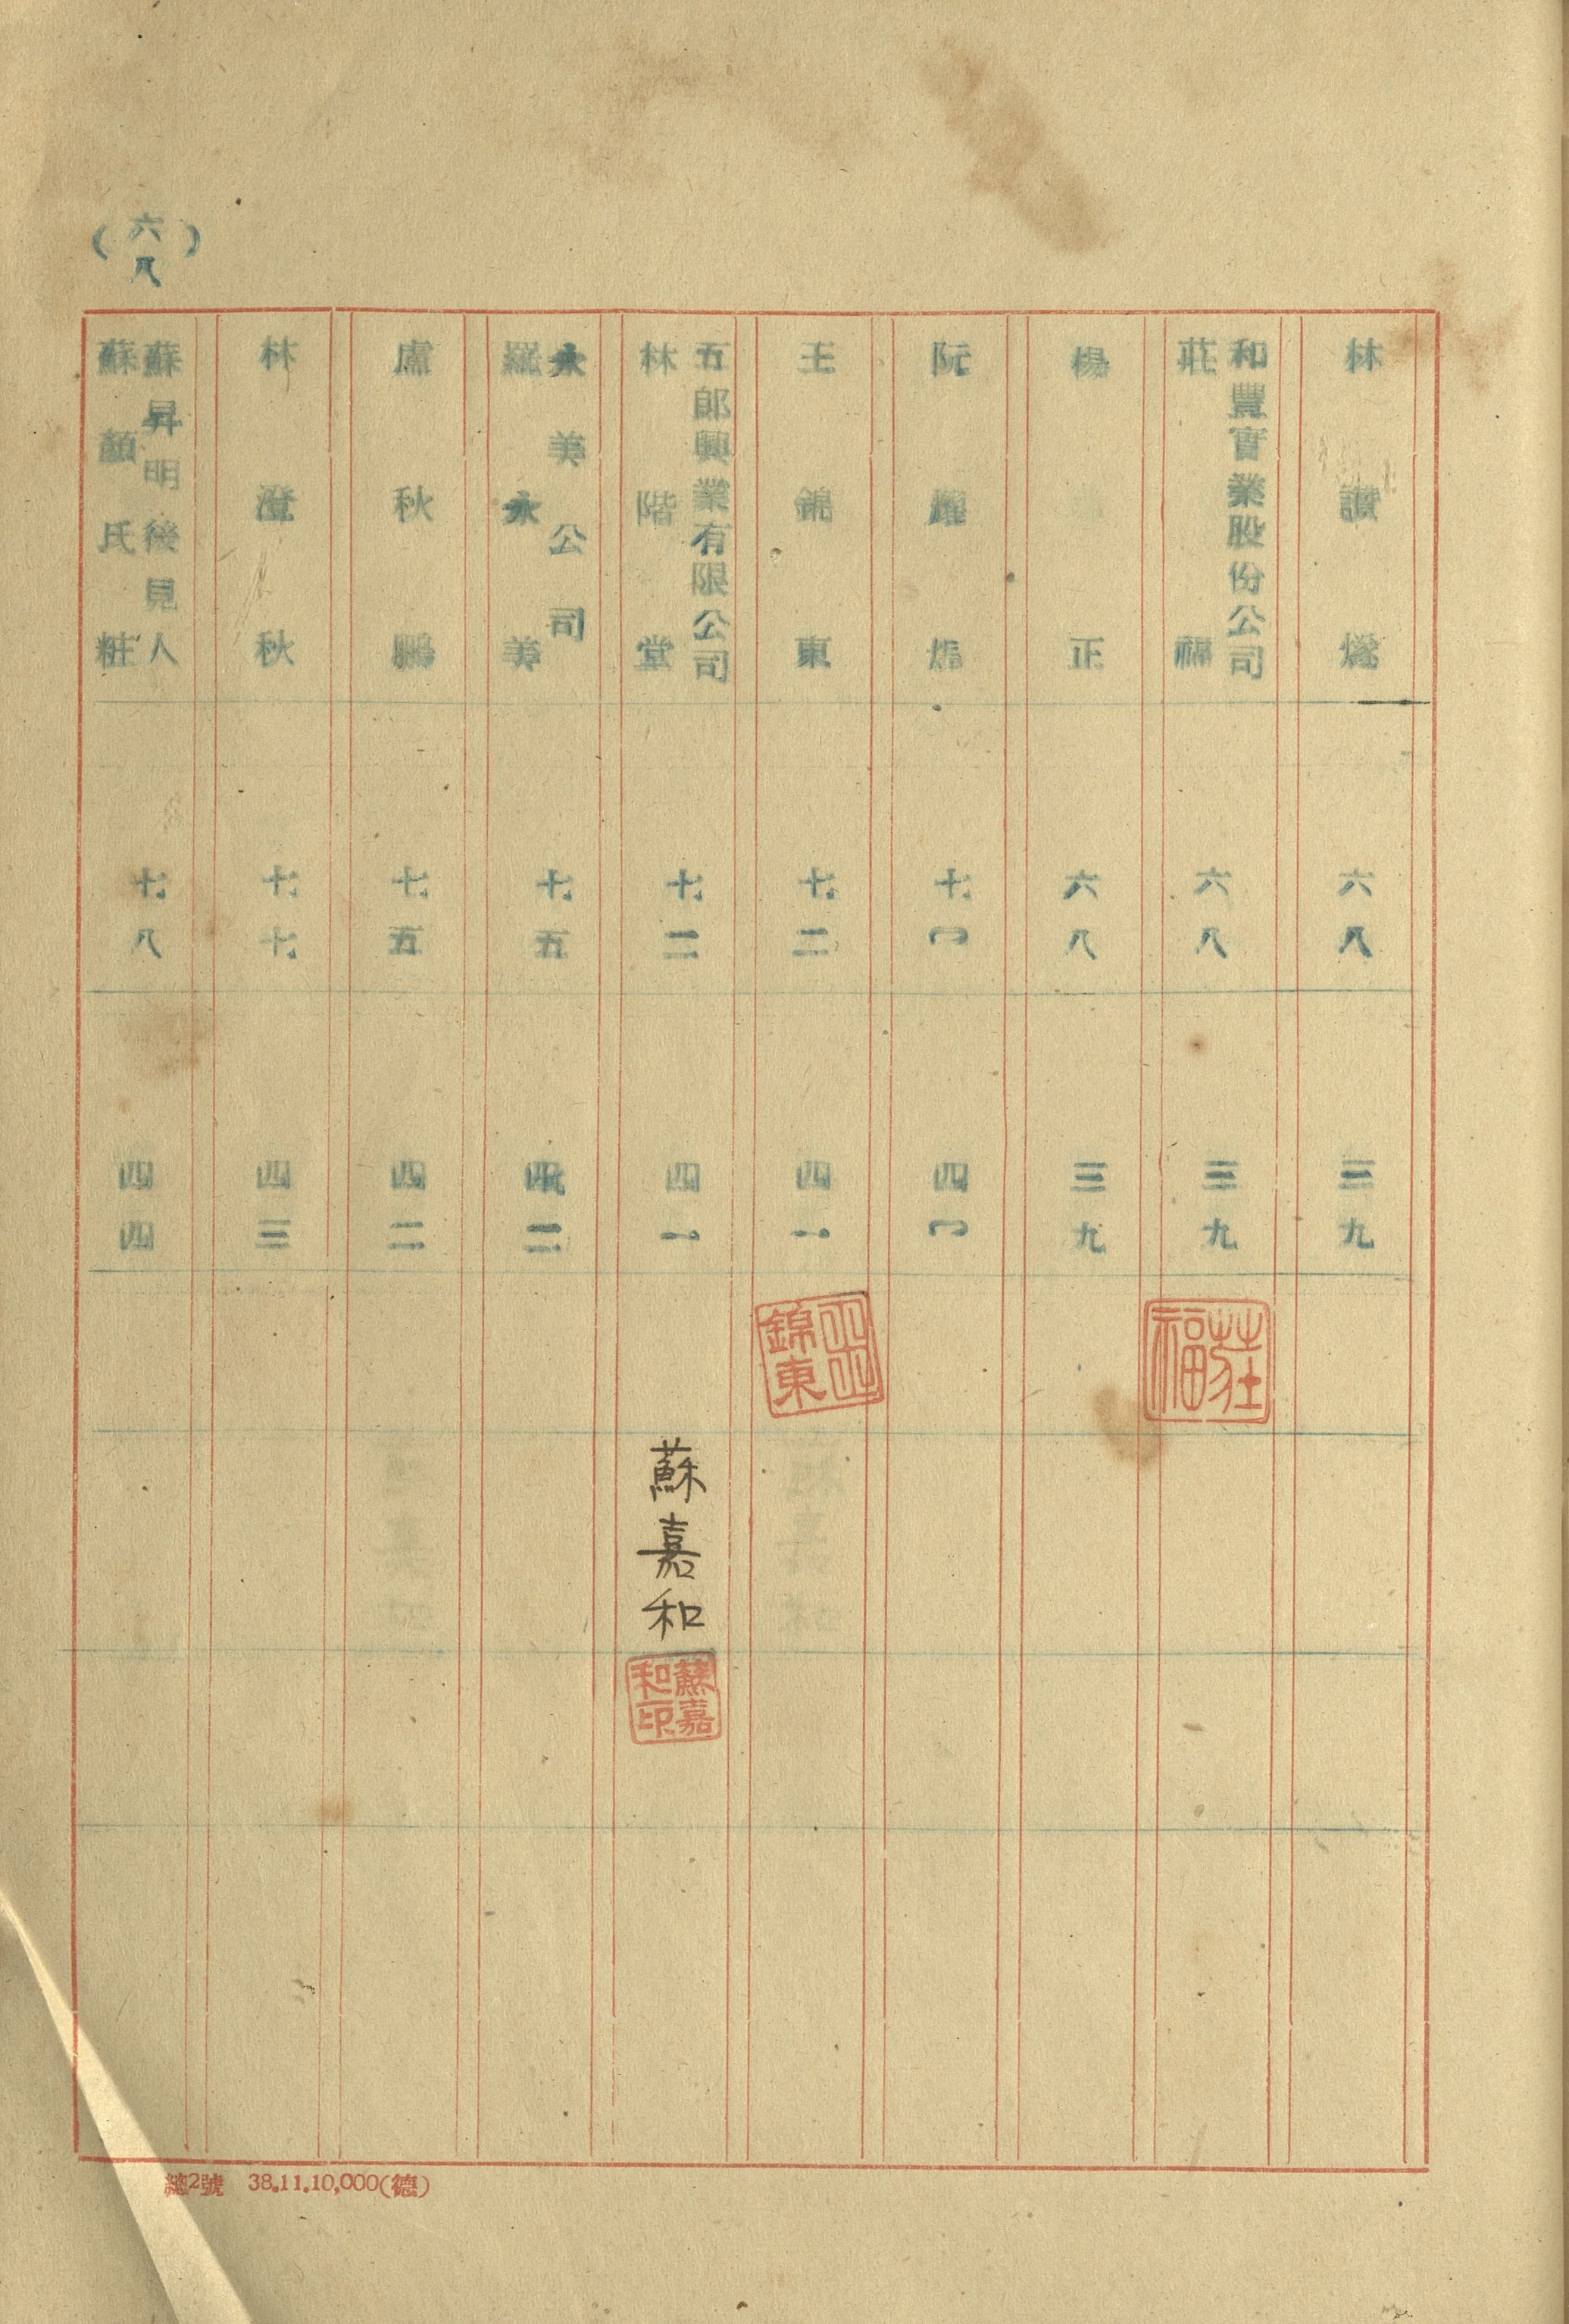 （六八）
林讚
六八
三九
和豐實業股份公司
莊福
六八
三九
莊福
楊 正
六八
三九
阮
七〇
四〇
王錦東
七二
四一
王錦東
五郎興業有限公司
林階堂
七二
四一
蘇嘉和
蘇嘉和印
永美公司
羅永美
七五
四二
盧秋鵬
七五
四二
林澄秋
七七
四三
蘇昇明後見人
蘇顏氏粧
七八
四四
總2號 38.11.10,000(德)